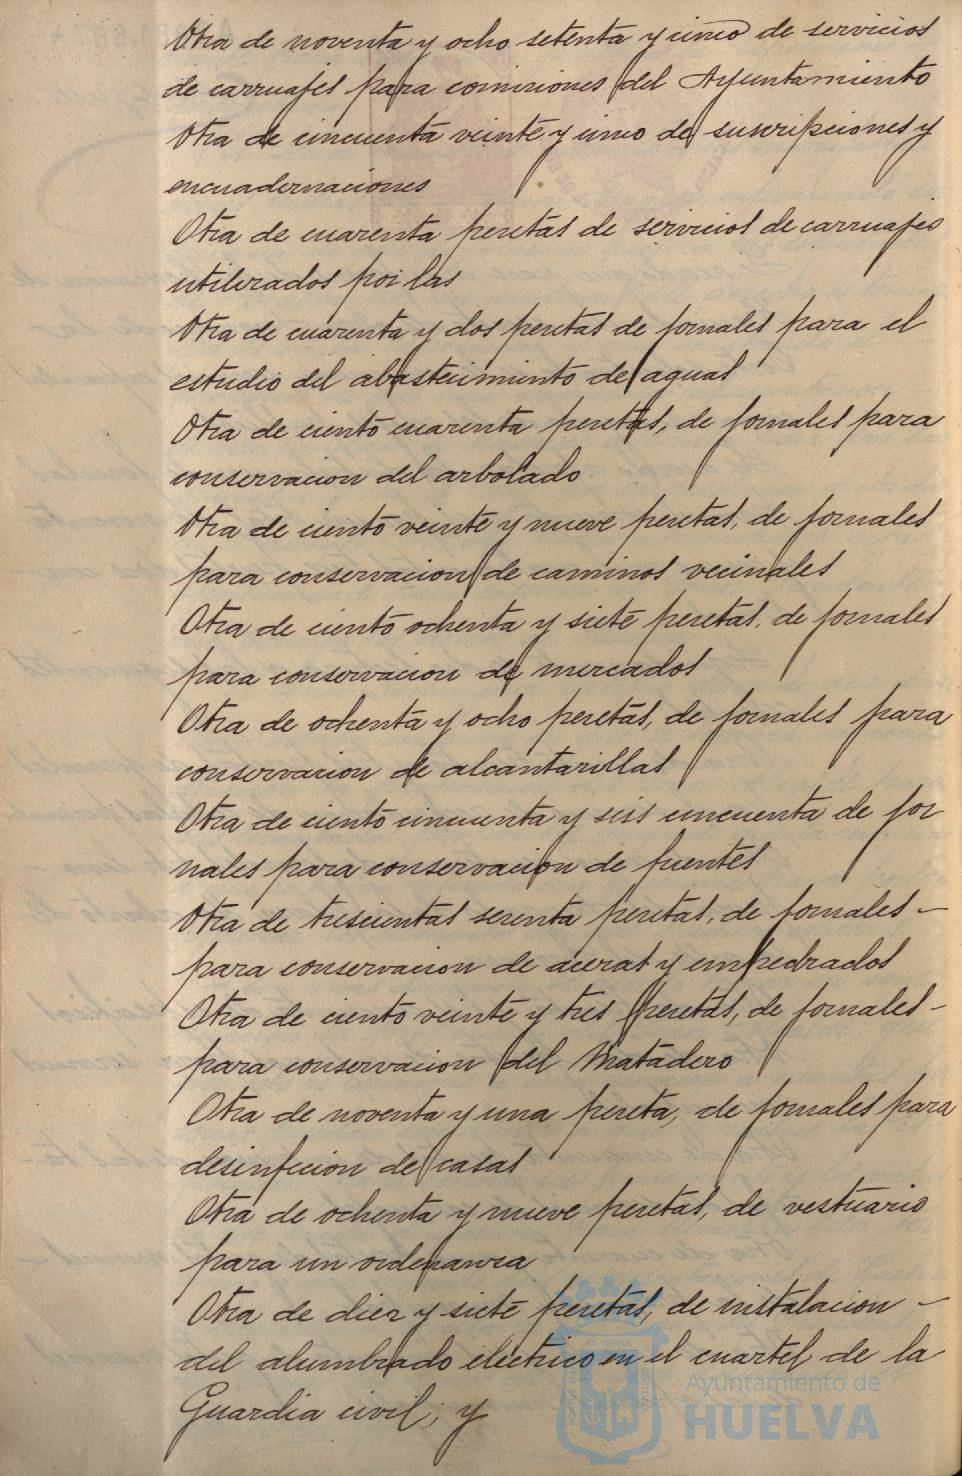 Otra de noventa y ocho setenta y cinco de servicios
de carruajes para comisiones del Ayuntamiento
Otra de cincuenta veinte y cinco de suscripciones y
encuadernaciones
Otra de cuarenta pesetas de servicios de carruajes
utilizados por las
Otra de cuarenta y dos pesetas de jornales para el
estudio del abastecimiento de aguas
Otra de ciento cuarenta pesetas, de jornales para
conservacion del arbolado
Otra de ciento veinte y nueve pesetas, de jornales
para conservacion de caminos vecinales
Otra de ciento ochenta y siete pesetas, de jornales
para conservacion de mercados
Otra de ochenta y ocho pesetas, de jornales para
conservacion de alcantarillas
Otra de ciento cincuenta y seis cincuenta de jor
nales para conservacion de fuentes
Otra de trescientas sesenta pesetas, de jornales -
para conservacion de aceras y empedrados
Otra de ciento veinte y tres pesetas, de jornales -
para conservacion del Matadero
Otra de noventa y una peseta, de jornales para
desinfecion de casas
Otra de ochenta y nueve pesetas, de vestuario
para un ordenanza
Otra de diez y siete pesetas, de instalacion -
del alumbrado electrico en el cuartel de la
Guardia civil; y
Ayuntamiento de
HUELVA